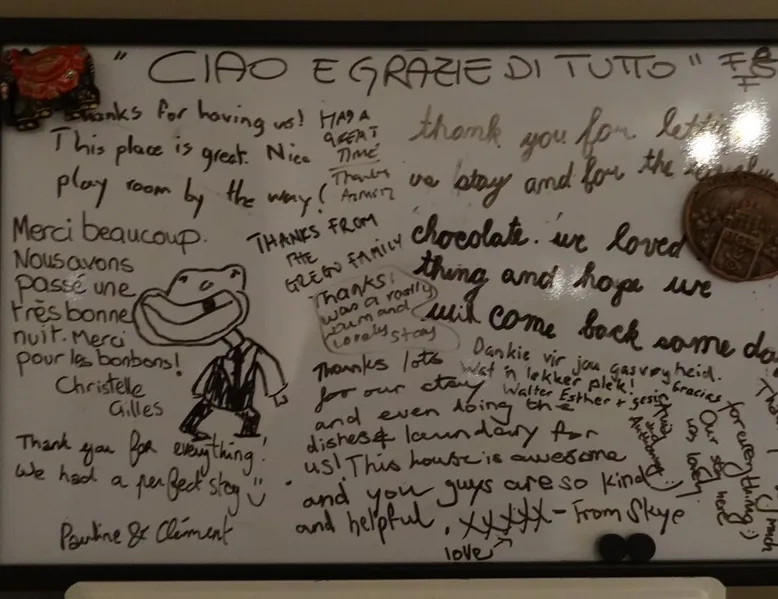 "CIAO E GRAZIE DI TUTTO"
Thanks for having us!
This place is great. Nice
play room by the way!
HAD A
GREAT
TIME
Thanks
thank you for
we stay and for the
chocolate. we loved
thing and hope we
will come back some
Merci beaucoup.
Nous avons
passé une
très bonne
nuit. Merci
pour les bonbons!
Christelle
Gilles
THANKS FROM
THE
GREGO FAMILY
Thanks!
was a really
warm and
lovely stay
Thank you for everything!
We had a perfect stay
Pauline & Clément
Thanks lots
for our stay
and even doing the
dishes & laundary for
us! This house is awesome
and you guys are so kind
and helpful. XXXXX - From Skye
love
Dankie vir jou gasvryheid.
Wat 'n lekker plek!
Walter Esther + gesin
Gracias
for everything :)
Our stay here
was lovely.